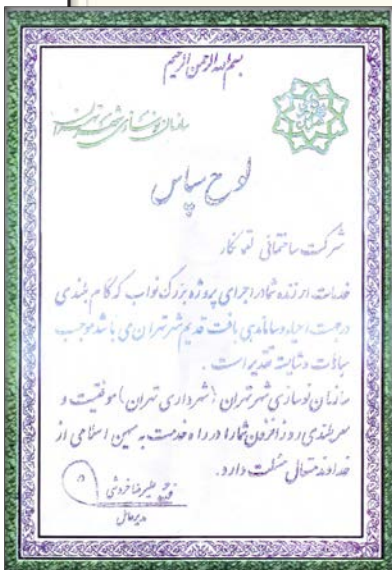 بسم الله الرحمن الرحیم
سازمان نوسازی شهر تهران
لوح سپاس
شرکت ساختمانی
خدمات ارزنده شما در اجرای پروژه بزرگ نواب که گام بلندی
در جهت احیاء و ساماندهی بافت قدیم شهر تهران می باشد موجب
مباهات و شایسته تقدیر است.
سازمان نوسازی شهر تهران (شهرداری تهران) موفقیت و
سربلندی روزافزون شما را در راه خدمت به میهن اسلامی از
خداوند متعال مسئلت دارد.
علیرضا
مدیرعامل